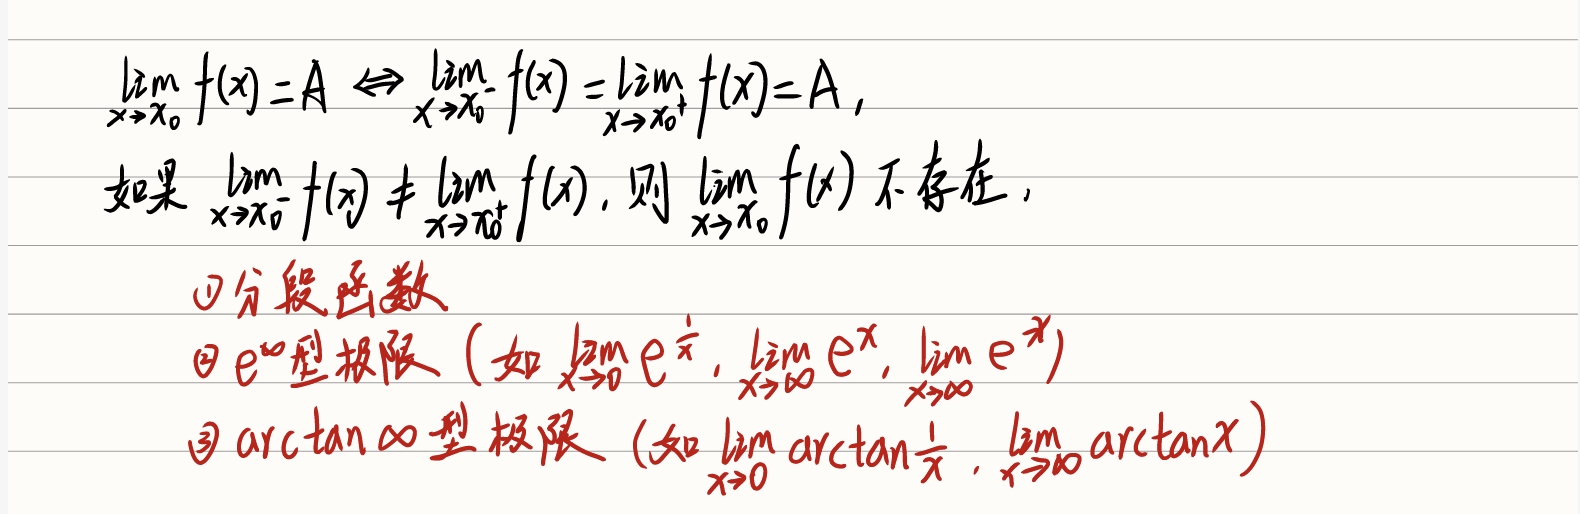 lim_{x→x₀} f(x) = A ⟺ lim_{x→x₀⁻} f(x) = lim_{x→x₀⁺} f(x) = A,
如果 lim_{x→x₀⁻} f(x) ≠ lim_{x→x₀⁺} f(x), 则 lim_{x→x₀} f(x) 不存在,
① 分段函数
② e^∞ 型极限 (如 lim_{x→0} e^{1/x}, lim_{x→∞} e^x, lim_{x→∞} e^{-x})
③ arctan ∞ 型极限 (如 lim_{x→0} arctan 1/x, lim_{x→∞} arctan x)